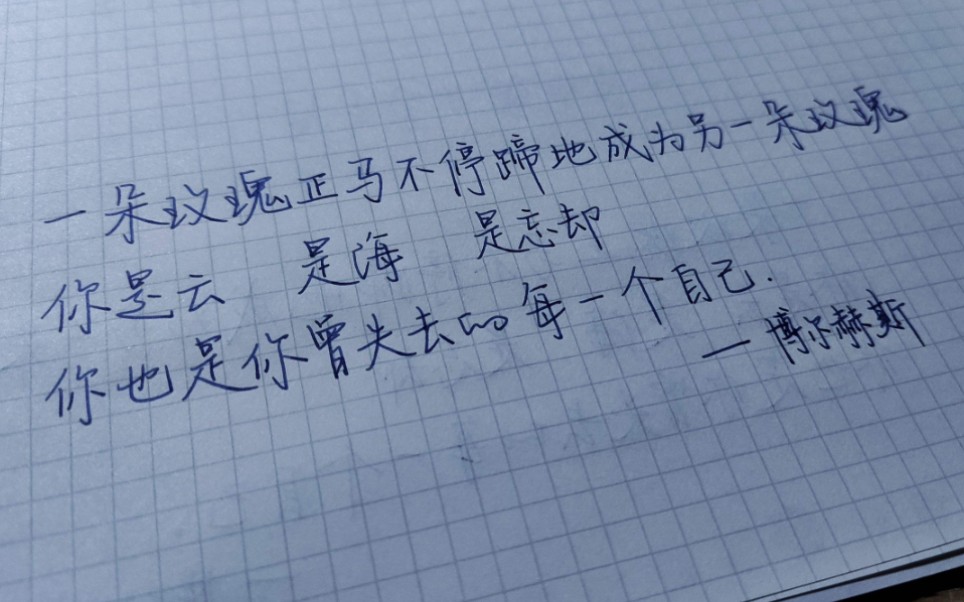 一朵玫瑰正马不停蹄地成为另一朵玫瑰
你是云 是海 是忘却
你也是你曾失去的每一个自己.
—博尔赫斯